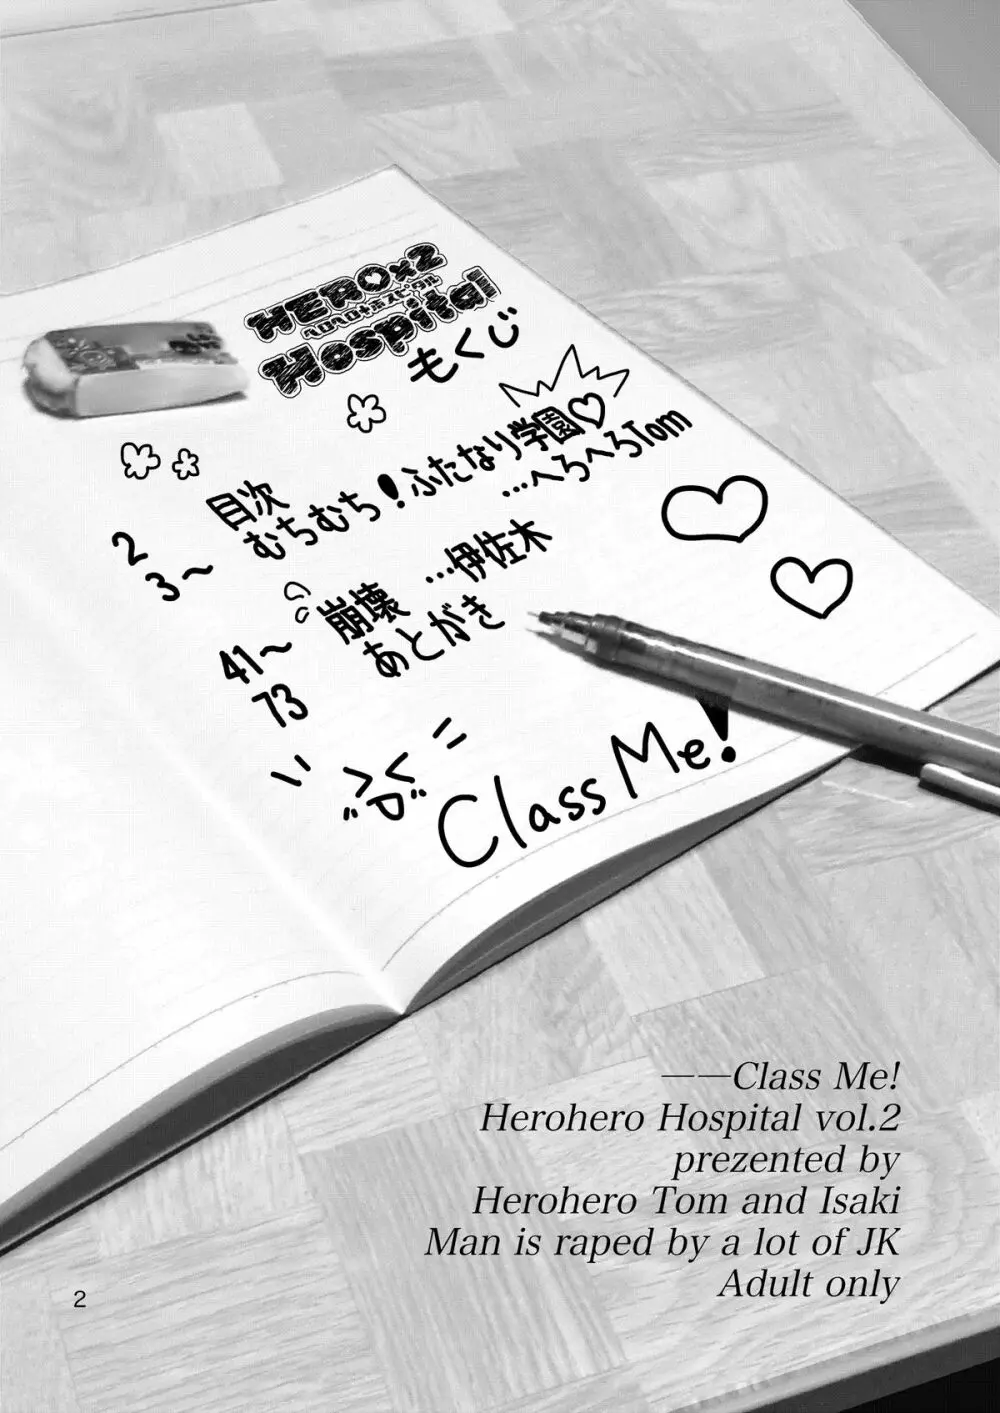 HERO×2
ヘロヘロホスピタル
Hospital
もくじ
2 目次
3〜 むちむち！ふたなり学園♡
…へろへろTom
41〜 崩壊 …伊佐木
73 あとがき
Class Me!
――Class Me!
Herohero Hospital vol.2
prezented by
Herohero Tom and Isaki
Man is raped by a lot of JK
Adult only
2